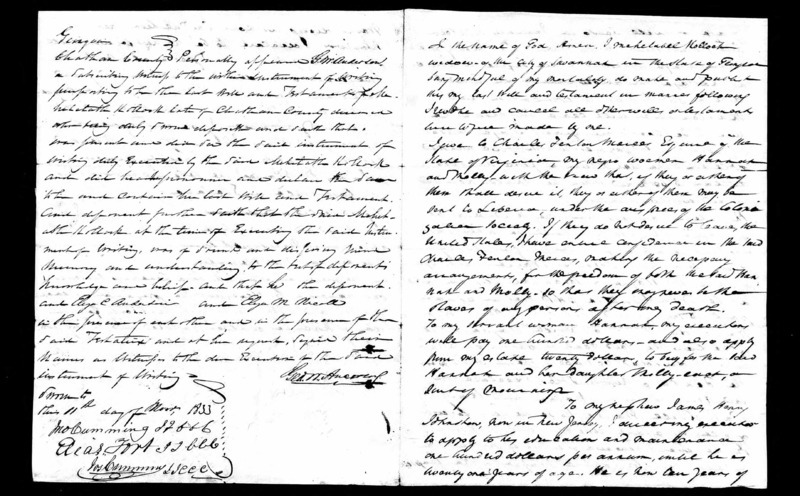 Georgia
Chatham County } Personally appeared G W Anderson
a Subscribing Witness to the within Instrument of Writing
purporting to be the last Will and Testament of
Kollock late of Chatham County deceased
who being duly Sworn deposeth and Saith that
was present and did See the Said instrument of
Writing duly Executed by the Said Kollock
and did hear her declare the Same
to be and contain her last Will and Testament.
And deponent further Saith that the Said
Kollock at the time of Executing the Said Instru-
ment of Writing, was of Sound and disposing Mind
Memory and understanding to the best of deponents
Knowledge and belief. and that he the deponent
and and Eliza M
in the presence of each other and in the presence of the
Said Testatrix and at her request, Signed their
Names as Witnesses to the due Execution of the Said
instrument of Writing
Sworn to
this 11th day of Novr 1833
Geo. W. Anderson
Jno Cumming
Elias Fort
Jos Cumming
In the Name of God Amen. I Mehetabel Kollock
widow of the City of Savannah in the State of Georgia
being mindful of my mortality, do make and publish
this my last Will and testament in manner following
I revoke and cancel all other wills or testaments
heretofore made by me.
I give to Charles Fenton Mercer Esquire of the
State of Virginia, my negro women Hannah
and Molly, with the view that, if they or either of
them shall desire it, they or either of them may be
sent to Liberia, under the auspices of the Coloni
zation Society. If they do not desire to leave the
United States, I have entire confidence in the said
Charles Fenton Mercer, making the necessary
arrangements, for the freedom of both the said Han
nah and Molly. so that they may never be the
slaves of any persons after my death.
To my servant woman Hannah, my executors
will pay one hundred dollars — and also apply
from my estate twenty dollars, to buy for the said
Hannah and her daughter Molly each, a
suit of mourning.
To my nephew James Henry
Johnston, now in New Jersey, I
to apply to his education and maintenance
one hundred dollars per annum, until he is
twenty one years of age. He is now ten years of